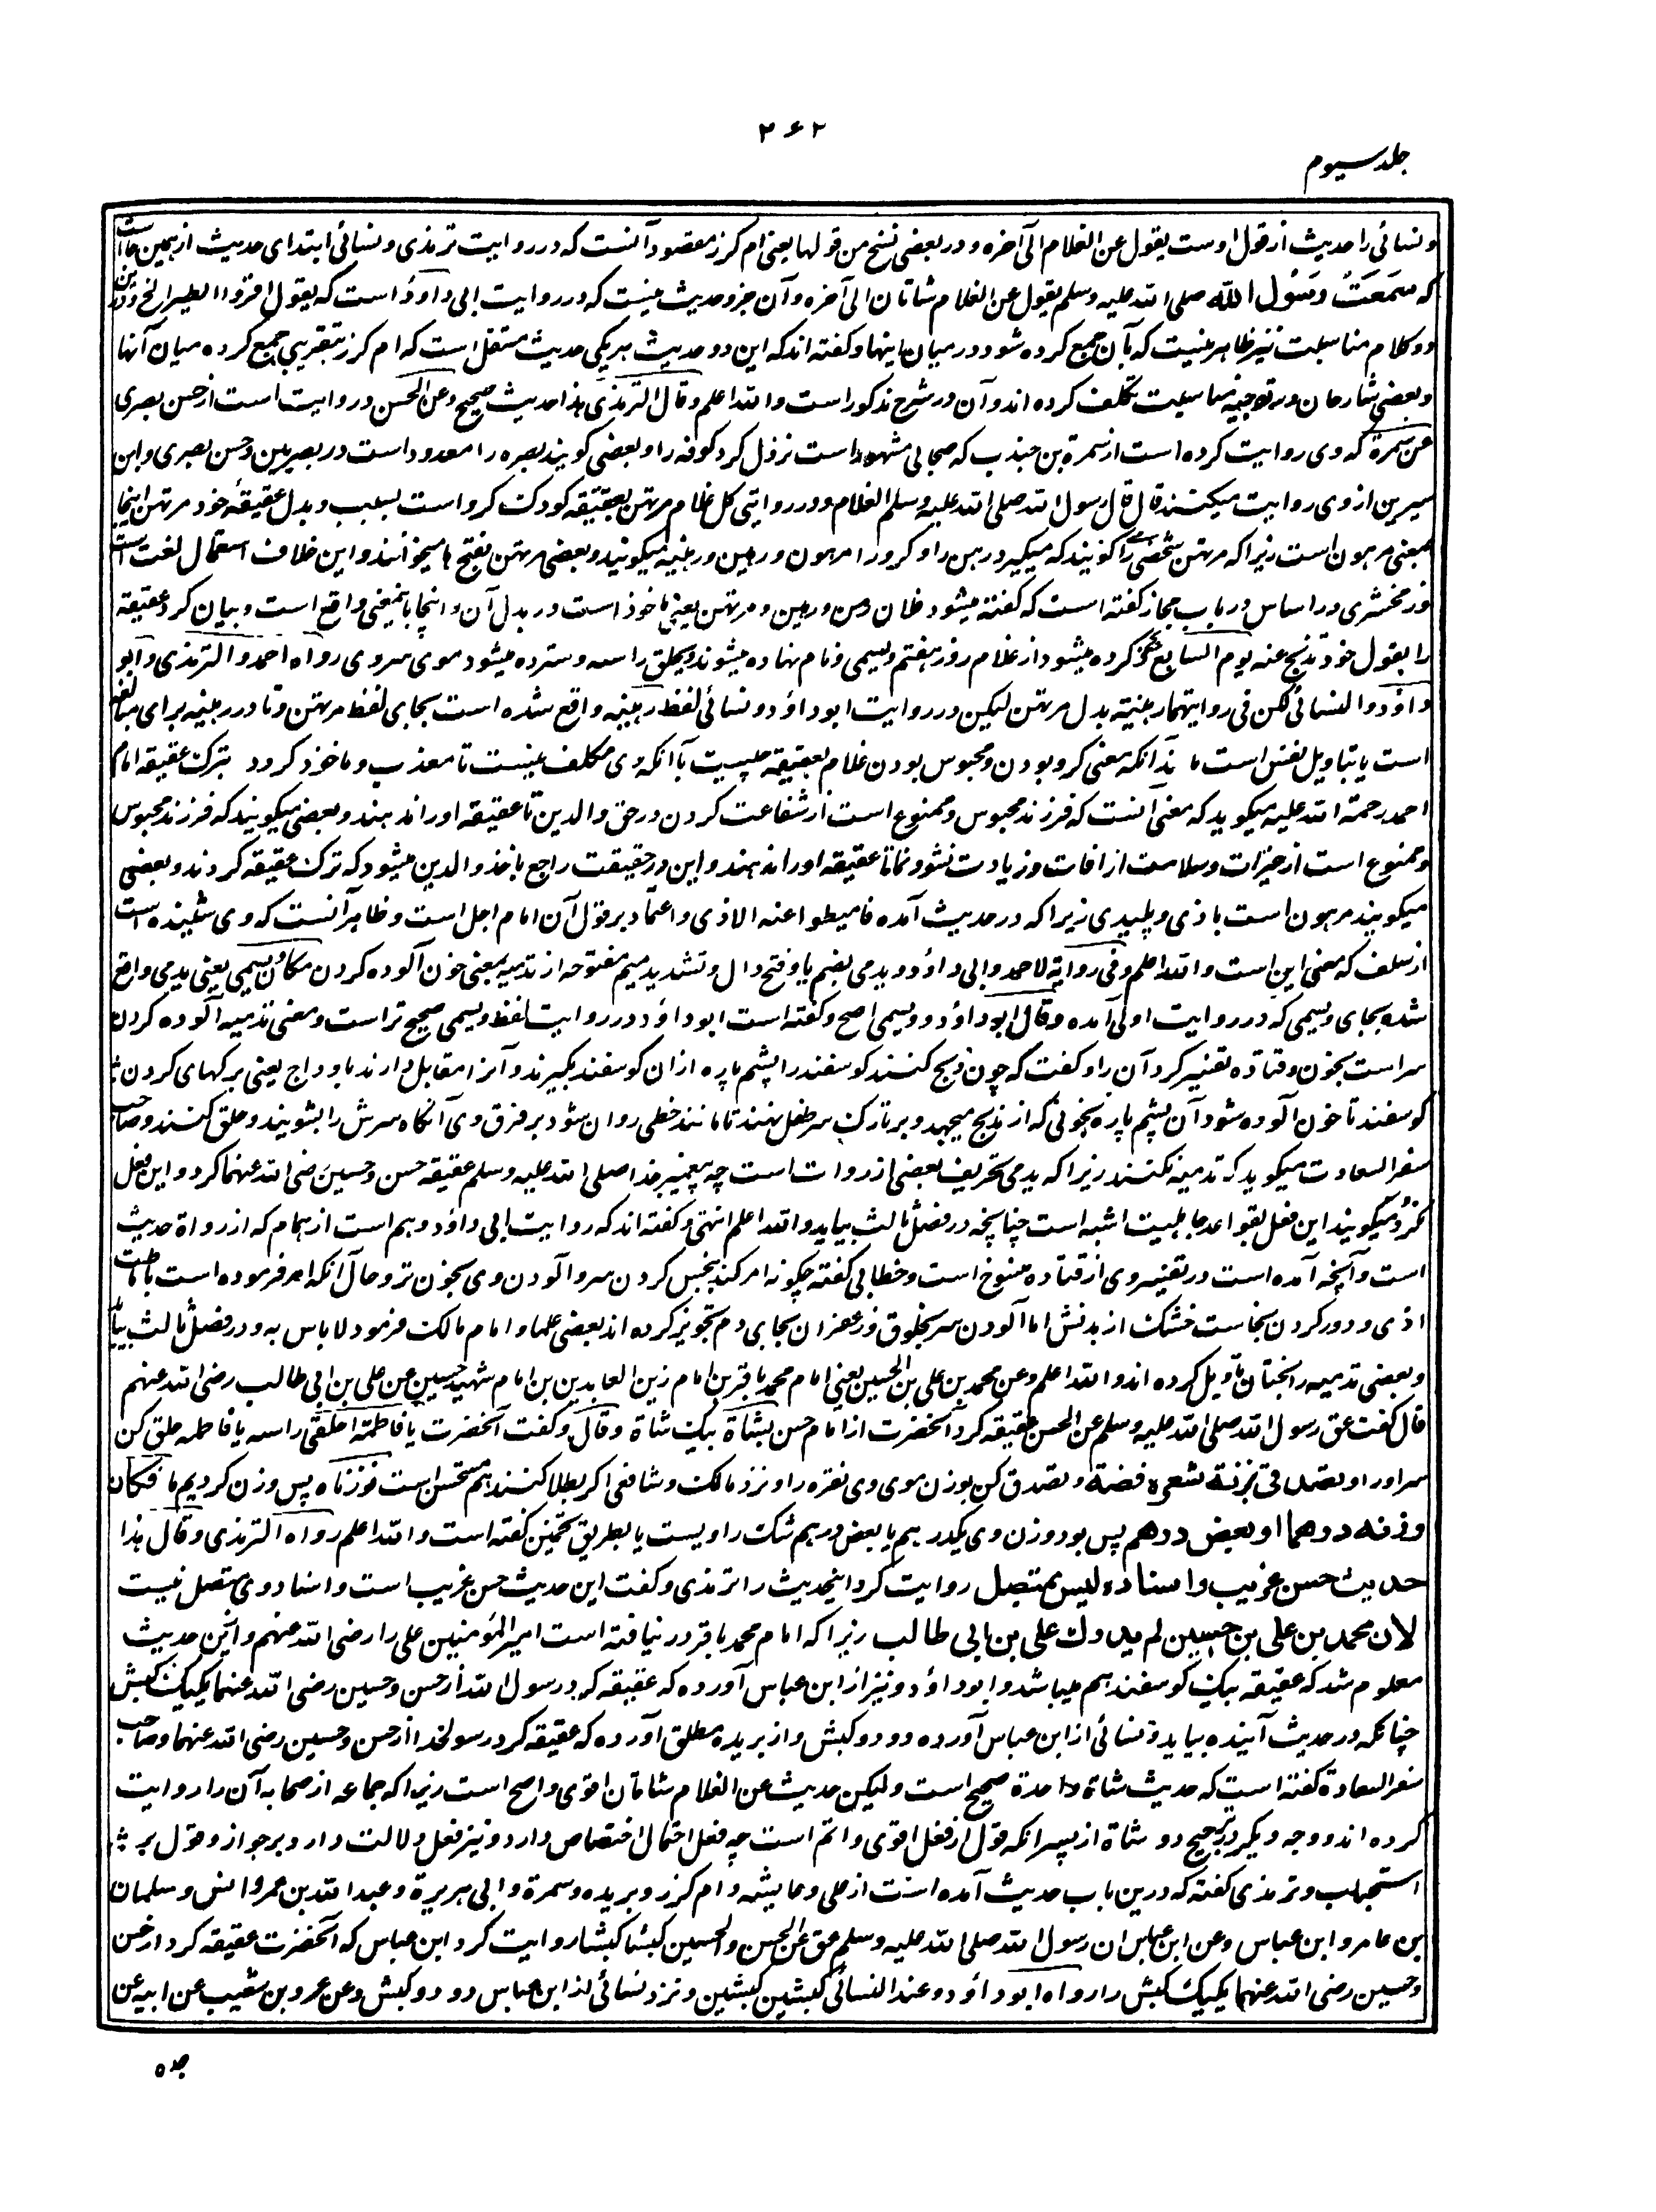 ۲۶۲
جلد سیوم
و نسائی را حدیث از قول اوست یقول عن الغلام الی آخره و در بعضی نسخ من قولها یعنی ام کرز مقصود آنست که در روایت ترمذی و نسائی ابتدای حدیث از همین جا است
که سَمِعَتُ رَسُولَ الله صلی الله علیه وسلم یقول عن الغلام شاتان الی آخره و آن جزو حدیث نیست که در روایت ابی داؤد است که یقول اقروا الطیر الخ و درین
دو کلام مناسبت نیز ظاهر نیست که بآن جمع کرده شود در میان اینها و گفته اند که این دو حدیث هریکی حدیث مستقل است که ام کرز بتقریبی جمع کرده میان آنها
و بعضی شارحان در توجیه مناسبت تکلف کرده اند و آن در شرح مذکور است والله اعلم و قال الترمذی هذا حدیث صحیح و عن الحسن و روایت است از حسن بصری
عن سمرة که وی روایت کرده است از سمرة بن جندب که صحابی مشهور است نزول کرد کوفه را و بعضی گویند بصره را معدود است در بصریین و حسن بصری و ابن
سیرین از وی روایت میکنند قال قال رسول الله صلی الله علیه وسلم الغلام و در روایتی کل غلام مرتهن بعقیقته کودک گرو است بسبب و بدل عقیقهٔ خود مرتهن اینجا
بمعنی مرهون است زیرا که مرتهن شخصی را گویند که میگیرد رهن را و گرو را مرهون و رهین و رهینه میگویند و بعضی مرتهن بفتح ها میخوانند و این خلاف استعمال لغت است
و زمخشری در اساس در باب مجاز گفته است که گفته میشود فلان رهن و رهین و مرتهن یعنی ماخوذ است در بدل آن و اینجا باینمعنی واقع است و بیان کرد عقیقه
را بقول خود تذبح عنه یوم السابع ذبح کرده میشود از غلام روز هفتم و یسمی و نام نهاده میشود و یحلق راسه و سترده میشود موی سر وی رواه احمد و الترمذی و ابو
داؤد و النسائی لکن فی روایتهما رهینة بدل مرتهن لیکن در روایت ابوداؤد و نسائی لفظ رهینه واقع شده است بجای لفظ مرتهن و تا در رهینه برای مبالغه
است یا بتاویل نفس است بدانکه معنی گرو بودن و محبوس بودن غلام بعقیقه چیست با آنکه وی مکلف نیست تا معذب و ماخوذ گردد بترک عقیقه امام
احمد رحمة الله علیه میگوید که معنی آنست که فرزند محبوس و ممنوع است از شفاعت کردن در حق والدین تا عقیقه او را ندهند و بعضی میگویند که فرزند محبوس
و ممنوع است از خیرات و سلامت از افات و زیادت نشو و نما تا عقیقه او را ندهند و این در حقیقت راجع باخذ والدین میشود که ترک عقیقه کردند و بعضی
میگویند مرهون است باذی و پلیدی زیرا که در حدیث آمده فامیطوا عنه الاذی و اعتماد بر قول آن امام اجل است و ظاهر آنست که وی شنیده است
از سلف که معنی این است والله اعلم و فی روایة لاحمد و ابی داؤد و یدمی بضم یا و فتح دال و تشدید میم مفتوحه از تدمیه بمعنی خون آلوده کردن مکان یسمی یعنی یدمی واقع
شده بجای و یسمی که در روایت اولی آمده و قال ابوداؤد و یسمی اصح و گفته است ابوداؤد در روایت لفظ و یسمی صحیح تر است و معنی تدمیه آلوده کردن
سر است بخون و قتاده تفسیر کرد آن را و گفت که چون ذبح کنند گوسفند را پشم پاره ازان گوسفند بگیرند و آنرا مقابل دارند باوداج یعنی برگهای گردن
گوسفند تا خون آلوده شود آن پشم پاره بخونی که از ذبح میجهد و بر تارک سر طفل نهند تا مانند خطی روان شود بر فرق وی آنگاه سرش را بشویند و حلق کنند و صاحب
سفر السعادت میگوید که تدمیه نکنند زیرا که یدمی تحریف بعضی از رواست است چه پیغمبر خدا صلی الله علیه وسلم عقیقه حسن و حسین رضی الله عنهما کرد و این فعل
نکرد و میگویند این فعل بقواعد جاهلیت اشبه است چنانچه در فصل ثالث بیاید والله اعلم انتهی و گفته اند که روایت ابی داؤد وهم است از همام که از رواة حدیث
است و آنچه آمده است در تفسیر وی از قتاده منسوخ است و خطابی گفته چگونه امر کند بنجس کردن سر و آلودن وی بخون تر و حال آنکه امر فرموده است باماطت
اذی و دور کردن نجاست خشک از بدنش اما آلودن سر بخلوق و زعفران بجای دم تجویز کرده اند بعضی علما و امام مالک فرمود لا باس به و در فصل ثالث بیاید
و بعضی تدمیه را بختان تاویل کرده اند والله اعلم و عن محمد بن علی بن الحسین یعنی امام محمد باقر بن امام زین العابدین بن امام شهید حسین عن علی بن ابی طالب رضی الله عنهم
قال گفت عق رسول الله صلی الله علیه وسلم عن الحسن عقیقه کرد آنحضرت از امام حسن بشاة بیک شاة و قال و گفت آنحضرت یا فاطمة احلقی راسه یا فاطمه حلق کن
سر او را و تصدقی بزنة شعره فضة و تصدق کن بوزن موی وی نقره را و نزد مالک و شافعی اگر بطلا کنند هم مستحسن است فوزناه پس وزن کردیم ما فکان
وزنه درهما او بعض درهم پس بود وزن وی یکدرهم یا بعض درهم شک راویست یا بطریق تخمین گفته است والله اعلم رواه الترمذی و قال هذا
حدیث حسن غریب و اسناده لیس بمتصل روایت کرد اینحدیث را ترمذی و گفت این حدیث حسن غریب است و اسناد وی متصل نیست
لان محمد بن علی بن حسین لم یدرک علی بن ابی طالب زیرا که امام محمد باقر در نیافته است امیر المؤمنین علی را رضی الله عنهم و ازین حدیث
معلوم شد که عقیقه بیک گوسفند هم میباشد و ابوداؤد و نیز از ابن عباس آورده که عقیقه کرد رسول الله از حسن و حسین رضی الله عنهما یکیک کبش
چنانکه در حدیث آینده بیاید و نسائی از ابن عباس آورده دو دو کبش و از بریده مطلق آورده که عقیقه کرد رسولخدا از حسن و حسین رضی الله عنهما و صاحب
سفر السعادة گفته است که حدیث شاة واحدة صحیح است و لیکن حدیث عن الغلام شاتان اقوی و اصح است زیرا که جماعه از صحابه آن را روایت
کرده اند و وجه دیگر در ترجیح دو شاة از پسر آنکه قول از فعل اقوی و اتم است چه فعل احتمال اختصاص دارد و نیز فعل دلالت دارد بر جواز و قول بر
استحباب و ترمذی گفته که درین باب حدیث آمده است از علی و عایشه و ام کرز و بریده و سمرة و ابی هریرة و عبدالله بن عمر و انس و سلمان
بن عامر و ابن عباس و عن ابن عباس ان رسول الله صلی الله علیه وسلم عق عن الحسن و الحسین کبشا کبشا روایت کرد ابن عباس که آنحضرت عقیقه کرد از حسن
و حسین رضی الله عنهما یکیک کبش را رواه ابوداؤد و عند النسائی کبشین کبشین و نزد نسائی از ابن عباس دو دو کبش و عن عمرو بن شعیب عن ابیه عن
جده